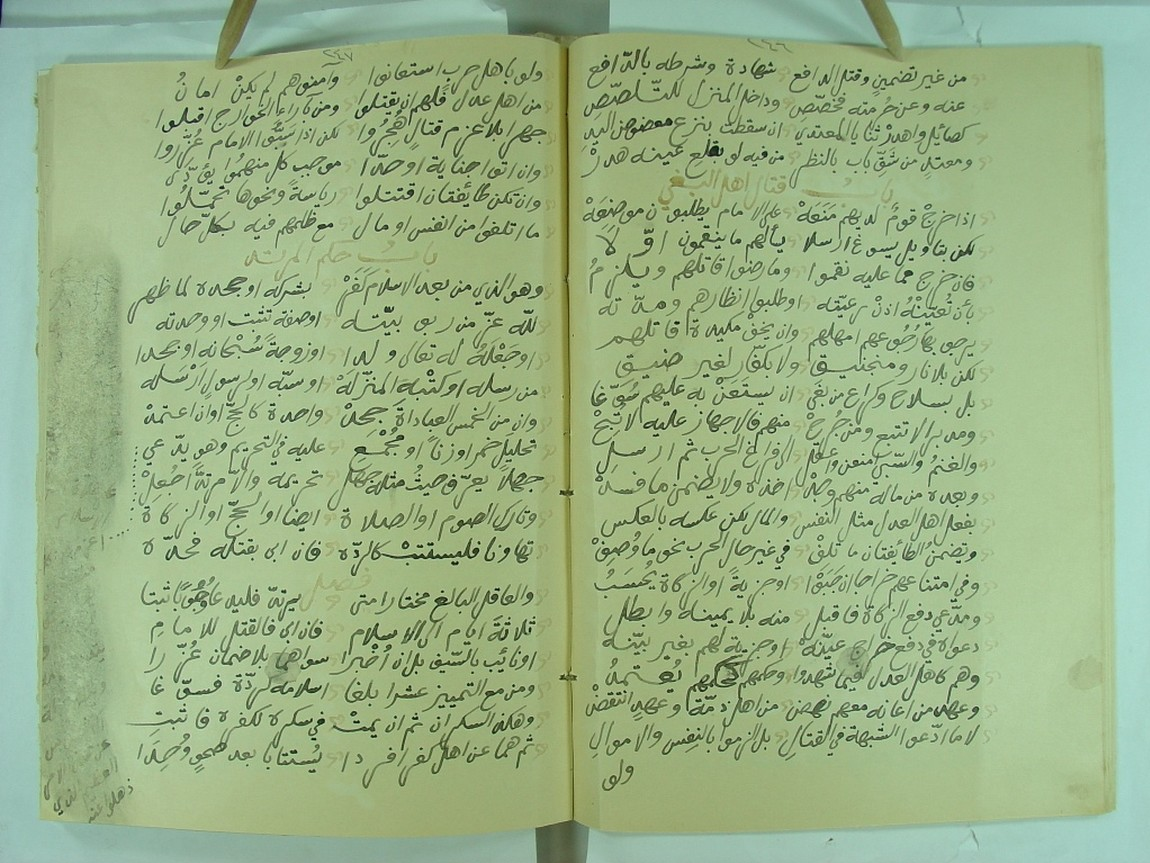 ٢٤٦
من غير تضمين وقتل الدافع شهادة وشرطه بالدافع
عنه وعن حرمته فخصص وداخل المنزل كالتلصص
كصائل واهدر ثنايا المعتدي ان سقطت بنزع معضوض اليد
ومعتد من شق باب بالنظر من فيه لو بقلع عينه هدر
باب قتال اهل البغي
اذا خرج قوم لديهم منعه على الامام يطلبون موضعه
لكن بتاويل يسوغ ارسلا يسألهم ما ينقمون اولا
فان خرج مما عليه نقموا وما رضوا قاتلهم ويلزم
او طلبوا انظارهم ومده
يرجى بها رجوعهم امهلهم وان يخف مكيدة قاتلهم
لكن بلا نار ومنجنيق ولا بكفار لغير ضيق
بل بسلاح وكراع من بغى ان يستعن به عليهم سوغا
ومدبرا لا تتبع ومن جرح منهم فالاجهاز عليه لا تبح
والغنم والسبي امنعن الى فراغ الحرب ثم ارسل
وبعده من ماله منهم وجد اخذه ولا يضمن ما فسد
بفعل اهل العدل مثل النفس والمال لكن عكسه بالعكس
وتضمن الطائفتان ما تلف في غير حال الحرب نحو ما وصف
وفي امتناعهم خراجا ان جبوا او جزية او الزكاة يحسب
ومدعي دفع الزكاة فاقبل منه بلا يمينه وابطل
دعواه في دفع خراج عينه او جزية لهم بغير بينه
وهم كاهل العدل فيما شهدوا وحكمهم كحكمهم يعتمد
وعهد من اعانه معهم نهض من اهل ذمة وعهد انتقض
لا ما ادعوا الشبهة في القتال بل الزموا بالنفس والاموال
ولو
٢٤٧
ولو باهل حرب استعانوا وآمنوهم لم يكن امان
من اهل عدل فلهم ان يقتلوا ومن راى الخوارج اقبلوا
جهرا بلا عزم قتال هجروا لكن اذا سبوا الامام عزروا
وان اتوا جناية او حدا موجب كل منهموا يؤدى
وان تكن طائفتان اقتتلوا رياسة ونحوها تحملوا
ما اتلفا من النفس او مال مع ظلمهم فيه بكل حال
باب حكم المرتد
وهو الذي من بعد الاسلام كفر بشركه او جحده لما ظهر
لله عز من ربوبيته او صفة تثبت او وحدته
او جعله له تعالى ولدا او زوجة سبحانه او جحدا
من رسله او كتبه المنزله او سبه او لرسول ارسله
وان من الخمس العبادات جحد واحدة كالحج او ان اعتمد
تحليل خمر او زنا او مجمع عليه في التحريم وهو يدعي
جهلا يعرف حيث مثله جهل تحريمه والا مرتدا جعل
وتارك الصوم او الصلاة ايضا او الحج او الزكاة
تهاونا فليستتب كالرده فان ابى بقتله فحده
فصل
والعاقل البالغ مختارا متى يرتد فليدعا وجوبا ثبتا
ثلاثة ايام الى الاسلام فان ابى فالقتل للامام
او نائب بالسيف بل ان أخرا سواهما بلا ضمان عزرا
ومن مع التمييز عشرا بلغا اسلامه كردة فسوغا
وهكذا السكران ثم ان يمت في سكره لكفره فاثبت
ثم هما عن اهل كفر افردا يستتابا بعد صحو وجدا